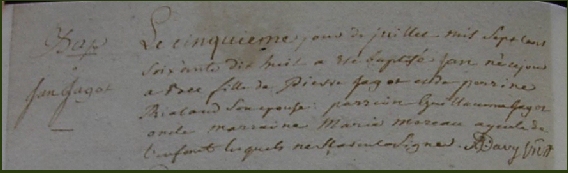 Bap
Jan Gagot
Le cinquieme jour de juillet mil sept cent
soixante dix huit a été baptisé Jan né ce jour
a Bree fille de Pierre Gagot et de perrine
Rialand son epouse parrein Guillaume Gagot
oncle marraine Marie moreau ayeule de
l'enfant lesquels ne sign. Davy